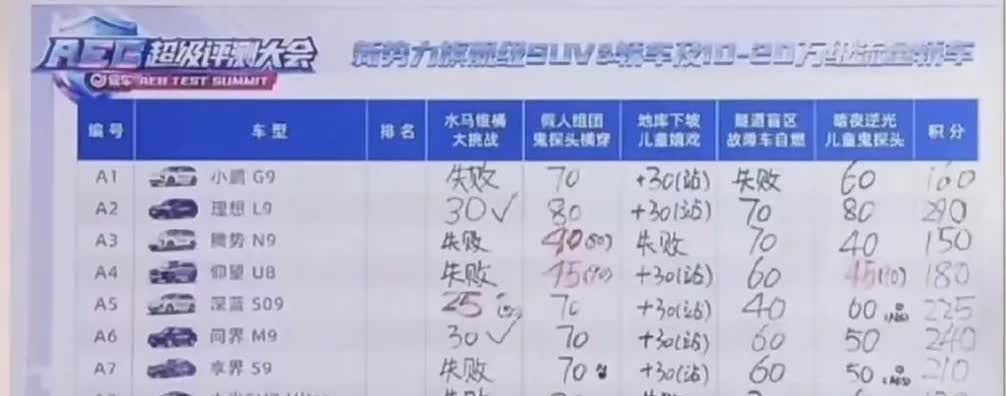 AEB 超级评测大会 新势力旗舰级SUV&轿车及10-20万级新能源轿车
易车 AEB TEST SUMMIT
编号 车型 排名 水马锥桶大挑战 假人组团鬼探头横穿 地库下坡儿童嬉戏 隧道盲区故障车自燃 暗夜逆光儿童鬼探头 积分
A1 小鹏 G9 失败 70 +30(站) 失败 60 160
A2 理想 L9 30✓ 80 +30(站) 70 80 290
A3 腾势 N9 失败 40(80) 失败 70 40 150
A4 仰望 U8 失败 45(90) +30(站) 60 45(90) 180
A5 深蓝 S09 25 70 +30(站) 40 60 225
A6 问界 M9 30✓ 70 +30(站) 60 50 240
A7 享界 S9 失败 70 +30(站) 60 50 210